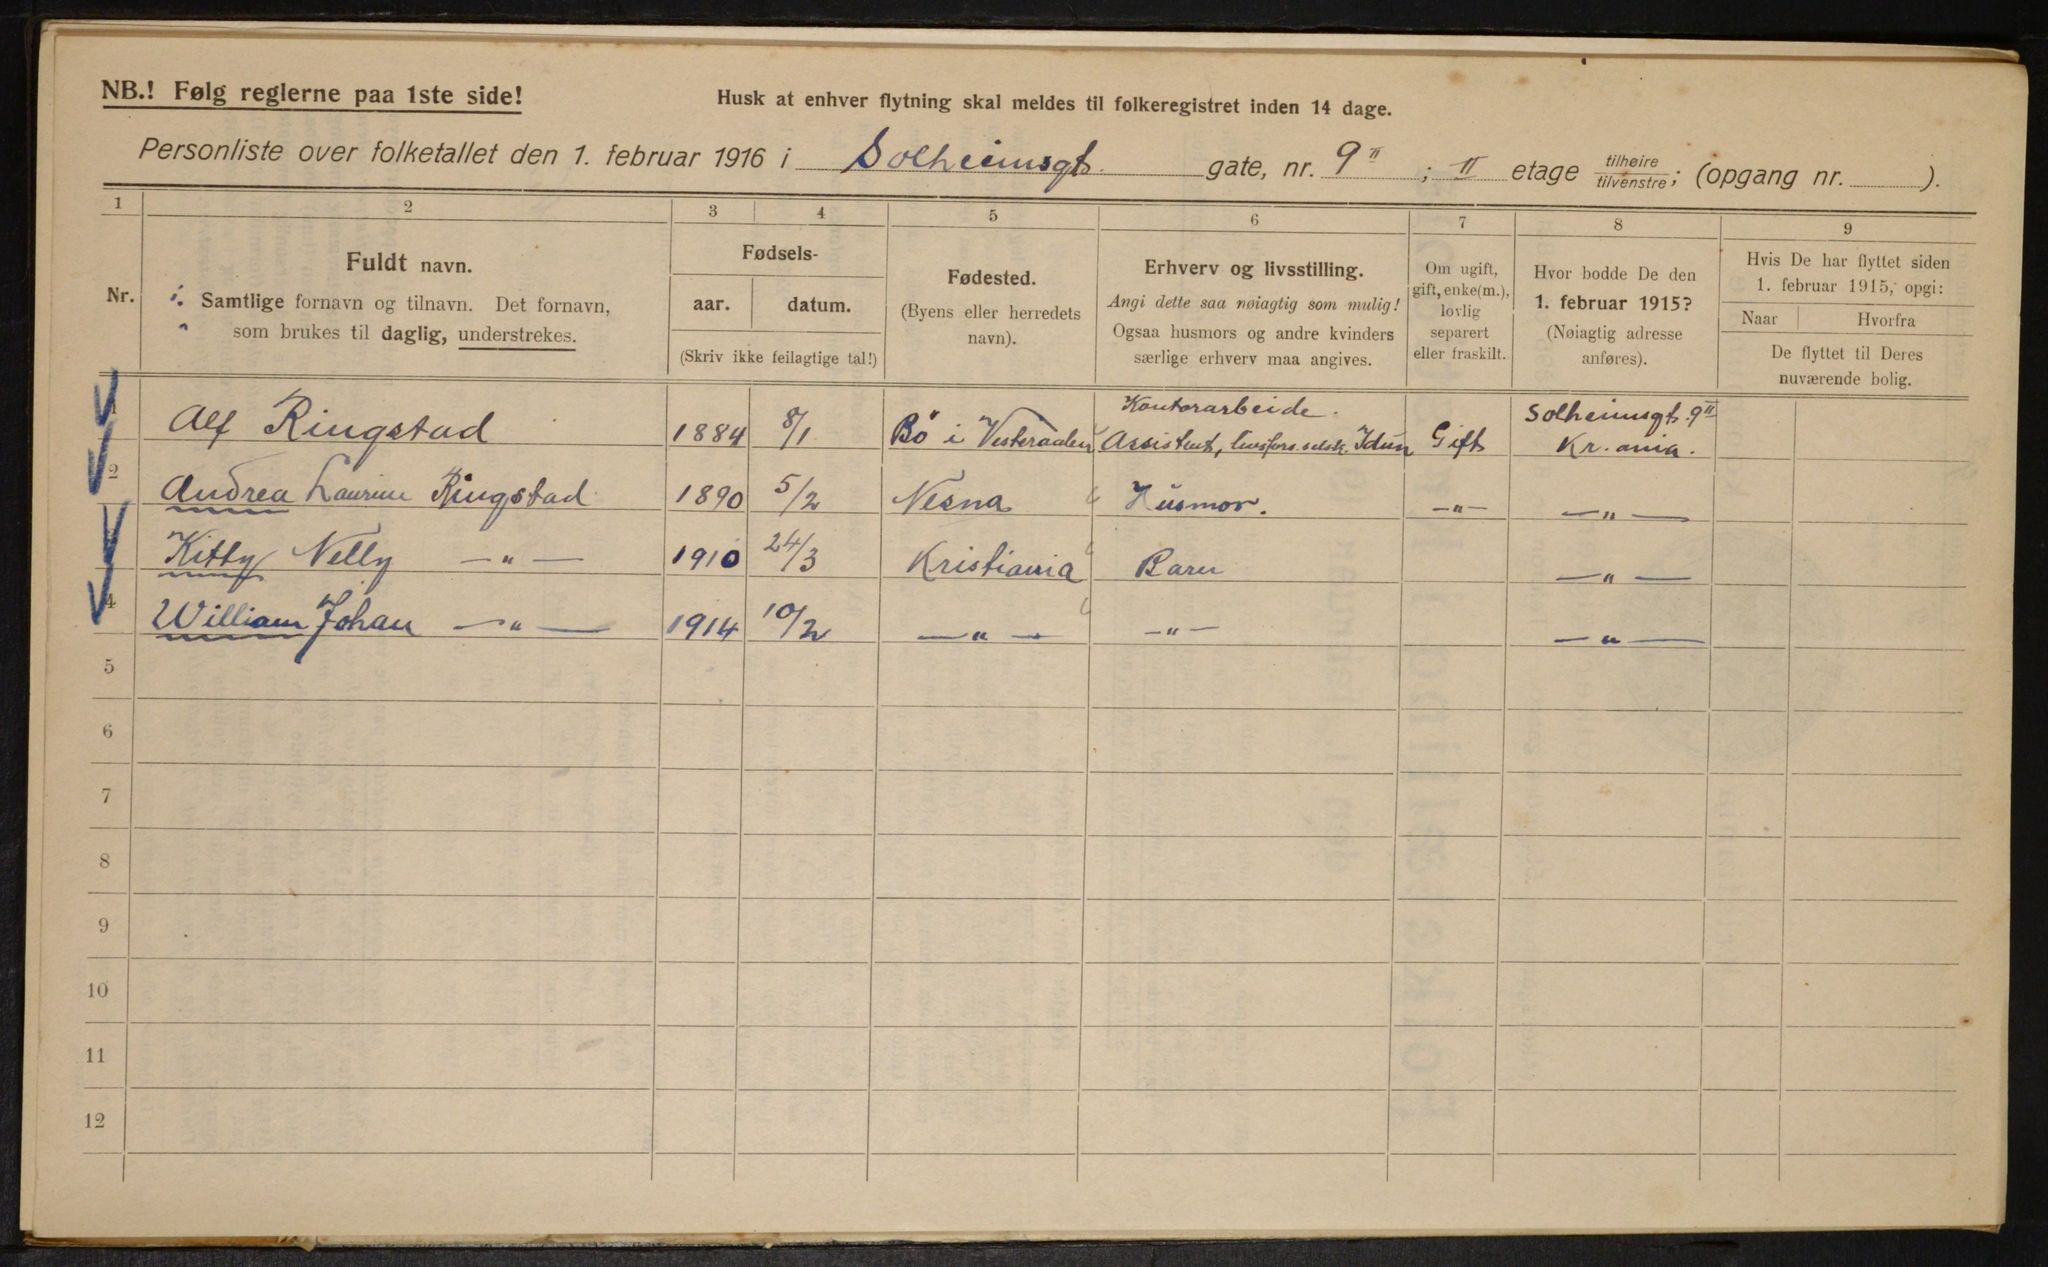 NB.! Følg reglerne paa 1ste side!
Husk at enhver flytning skal meldes til folkeregistret inden 14 dage.
Personliste over folketallet den 1. februar 1916 i Solheimsgt. gate, nr. 9 II ; II etage tilhøire / tilvenstre; (opgang nr. ).
1 2 3 4 5 6 7 8 9
Nr.
Fuldt navn.
Samtlige fornavn og tilnavn. Det fornavn,
som brukes til daglig, understrekes.
Fødsels-
aar. datum.
(Skriv ikke feilagtige tal!)
Fødested.
(Byens eller herredets
navn).
Erhverv og livsstilling.
Angi dette saa nøiagtig som mulig!
Ogsaa husmors og andre kvinders
særlige erhverv maa angives.
Om ugift,
gift, enke(m.),
lovlig
separert
eller fraskilt.
Hvor bodde De den
1. februar 1915?
(Nøiagtig adresse
anføres).
Hvis De har flyttet siden
1. februar 1915, opgi:
Naar Hvorfra
De flyttet til Deres
nuværende bolig.
Kontorarbeide. Solheimsgt. 9 II
1 Alf Ringstad 1884 8/1 Bö i Vesteraalen Assistent, livsfors. selsk. Idun Gift Kr.ania.
2 Andrea Laurine Ringstad 1890 5/2 Nesna Husmor. —"— —"—
Kitty Nelly —"— 1910 24/3 Kristiania Barn —"—
4 William Johan —"— 1914 10/2 —"— —"— —"—
5
6
7
8
9
10
11
12